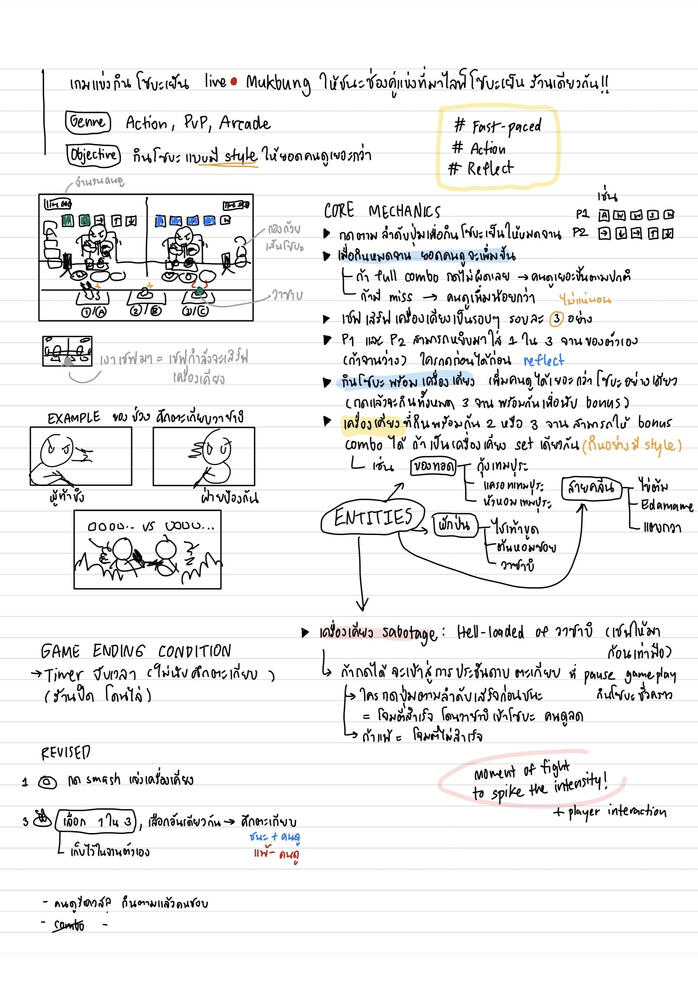 เกมแข่งกินโซบะเย็น live Mukbung ให้ชนะช่องคู่แข่งที่มาไลฟ์โซบะเย็นร้านเดียวกัน!!
Genre Action, PvP, Arcade
Objective กินโซบะ แบบมี style ให้ยอดคนดูเยอะกว่า
# Fast-paced
# Action
# Reflect
จำนวนคนดู
กองถ้วยเส้นโซบะ
วาซาบิ
①/Ⓐ ②/Ⓑ ③/Ⓒ
เงาเชฟมา = เชฟกำลังจะเสิร์ฟ
เครื่องเคียง
EXAMPLE ของ ช่วง ศึกตะเกียบวาซาบิ
ผู้ท้าชิง
ฝ่ายป้องกัน
OOOO... VS UOOO...
GAME ENDING CONDITION
→ Timer จับเวลา (ไม่นับศึกตะเกียบ)
(ร้านปิด โดนไล่)
REVISED
1 กด smash แย่งเครื่องเคียง
3 เลือก 1 ใน 3, เลือกอันเดียวกัน → ศึกตะเกียบ
ชนะ + คนดู
แพ้ - คนดู
เก็บไว้ในจานตัวเอง
กินตามแล้วคนชอบ
- combo -
CORE MECHANICS
เช่น
P1
P2
▶ กดตาม ลำดับปุ่มเพื่อกินโซบะเย็นให้หมดจาน
▶ เมื่อกินหมดจาน ยอดคนดูจะเพิ่มขึ้น
ถ้า full combo กดไม่ผิดเลย → คนดูเยอะขึ้นตามปกติ
ถ้ามี miss → คนดูเพิ่มน้อยกว่า ไม่แน่นอน
▶ เชฟ เสิร์ฟ เครื่องเคียงเป็นรอบๆ รอบละ ③ อย่าง
▶ P1 และ P2 สามารถหยิบมาใส่ 1 ใน 3 จานของตัวเอง
(ถ้าจานว่าง) ใครกดก่อนได้ก่อน reflect
▶ กินโซบะ พร้อม เครื่องเคียง เพิ่มคนดูได้เยอะกว่า โซบะอย่างเดียว
(กดแล้วจะกินทั้งหมด 3 จาน พร้อมกันเพื่อนับ bonus)
▶ เครื่องเคียงที่กินพร้อมกัน 2 หรือ 3 จาน สามารถให้ bonus
combo ได้ ถ้าเป็นเครื่องเคียง set เดียวกัน (กินอย่างมี style)
เช่น ของทอด
กุ้งเทมปุระ
แครอทเทมปุระ
หัวหอมเทมปุระ
สายคลีน
ไข่ต้ม
Edamame
แตงกวา
ENTITIES
ผักป่น
ไชเท้าขูด
ต้นหอมซอย
วาซาบิ
▶ เครื่องเคียง sabotage : Hell-loaded of วาซาบิ (เชฟให้มา
ก้อนเท่ามือ)
ถ้ากดได้ จะเข้าสู่การ ประชันดาบ ตะเกียบ ที่ pause gameplay
กินโซบะ ชั่วคราว
ใคร กดปุ่มตามลำดับเสร็จก่อนชนะ
= โจมตีสำเร็จ โดนวาซาบิเข้าโซบะ คนดูลด
ถ้าแพ้ = โจมตีไม่สำเร็จ
moment of fight
to spike the intensity!
+ player interaction